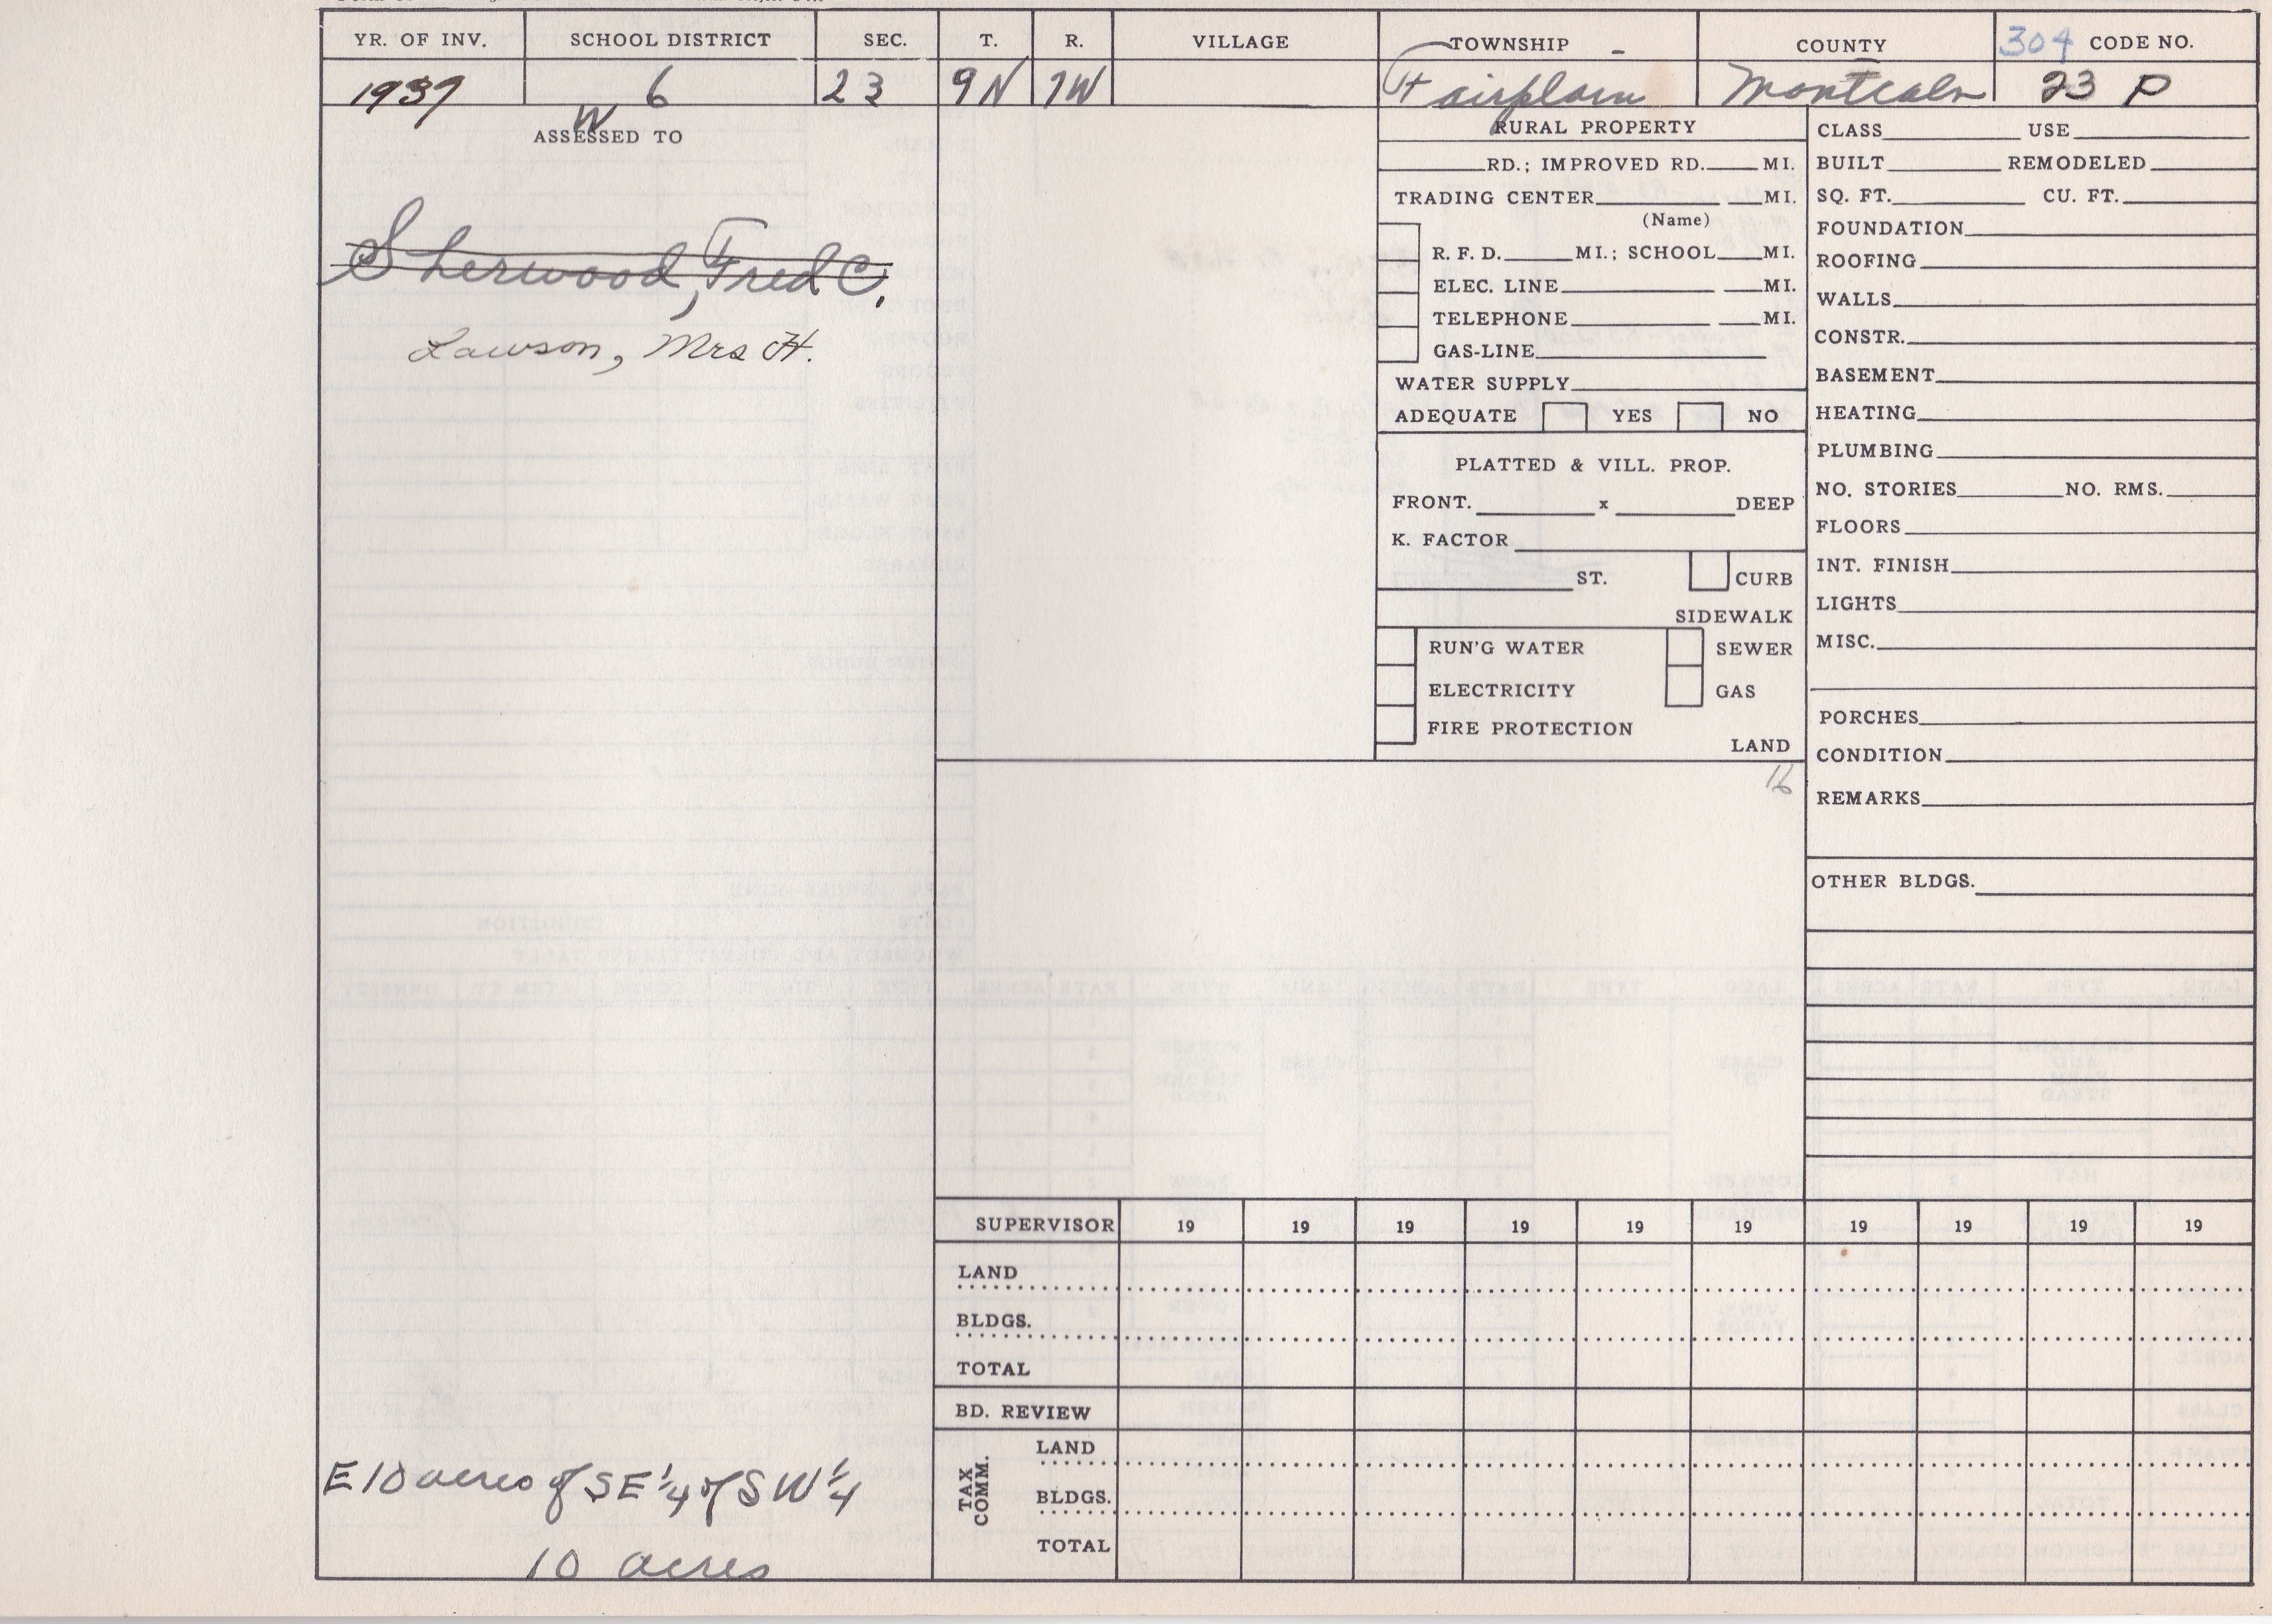 YR. OF INV. SCHOOL DISTRICT SEC. T. R. VILLAGE TOWNSHIP COUNTY 304 CODE NO.
1937 6 23 9N 7W Fairplain Montcalm 23 P
W
ASSESSED TO
Sherwood, Fred C.
Lawson, Mrs H.
E 10 acres of SE 1/4 of SW 1/4
10 acres
RURAL PROPERTY
RD.; IMPROVED RD. MI.
TRADING CENTER MI.
(Name)
R. F. D. MI.; SCHOOL MI.
ELEC. LINE MI.
TELEPHONE MI.
GAS-LINE
WATER SUPPLY
ADEQUATE YES NO
PLATTED & VILL. PROP.
FRONT. x DEEP
K. FACTOR
ST. CURB
SIDEWALK
RUN'G WATER SEWER
ELECTRICITY GAS
FIRE PROTECTION
LAND
CLASS USE
BUILT REMODELED
SQ. FT. CU. FT.
FOUNDATION
ROOFING
WALLS
CONSTR.
BASEMENT
HEATING
PLUMBING
NO. STORIES NO. RMS.
FLOORS
INT. FINISH
LIGHTS
MISC.
PORCHES
CONDITION
REMARKS
OTHER BLDGS.
SUPERVISOR 19 19 19 19 19 19 19 19 19 19
LAND
BLDGS.
TOTAL
BD. REVIEW
TAX COMM.
LAND
BLDGS.
TOTAL